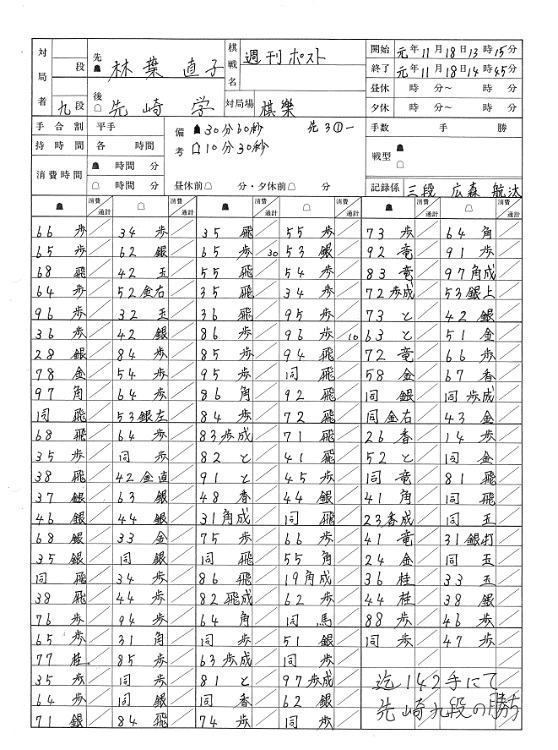 対局者 段 先 林葉 直子 棋戦名 週刊ポスト 開始 元年11月18日13時15分
終了 元年11月18日14時45分
九段 後 先崎 学 対局場 棋樂 昼休 時 分〜 時 分
夕休 時 分〜 時 分
手合割 平手 備考 30分60秒 先3①一 手数 手 勝
持時間 各 時間 10分30秒 戦型
消費時間 時間 分
時間 分 昼休前 分・夕休前 分 記録係 三段 広森 航汰
消費 通計 消費 通計 消費 通計 消費 通計 消費 通計 消費 通計
66歩 34歩 35飛 55歩 73歩 64角
65歩 62銀 65歩 30 53銀 92竜 91歩
68飛 42玉 55飛 54歩 83竜 97角成
64歩 52金右 35飛 34歩 72歩成 53銀上
96歩 32玉 36飛 95歩 73と 42銀
36歩 42銀 86歩 96歩 10 63と 51金
28銀 84歩 85歩 94飛 72竜 66歩
78金 54歩 95歩 同飛 58金 67香
97角 64歩 86角 92飛 同銀 同歩成
同飛 53銀左 84歩 72飛 同金右 43金
68飛 64歩 83歩成 71飛 26香 14歩
35歩 同歩 82と 41飛 52と 同金
38飛 42金直 91と 45歩 同竜 81飛
37銀 63銀 48香 44銀 41角 同飛
46銀 44銀 31角成 同飛 23香成 同玉
68銀 33金 75歩 66歩 41竜 31銀打
35銀 同銀 同飛 55角 24金 同玉
同飛 34歩 86飛 19角成 36桂 33玉
38飛 44歩 82飛成 62歩 44桂 38銀
76歩 94歩 64角 同馬 88歩 46歩
65歩 31角 同歩 51銀 同歩 47歩
77桂 85歩 63歩成 同歩
35歩 同歩 81と 97歩成 迄142手にて
64歩 同銀 同香 62銀 先崎九段の勝ち
71銀 84飛 74歩 同歩